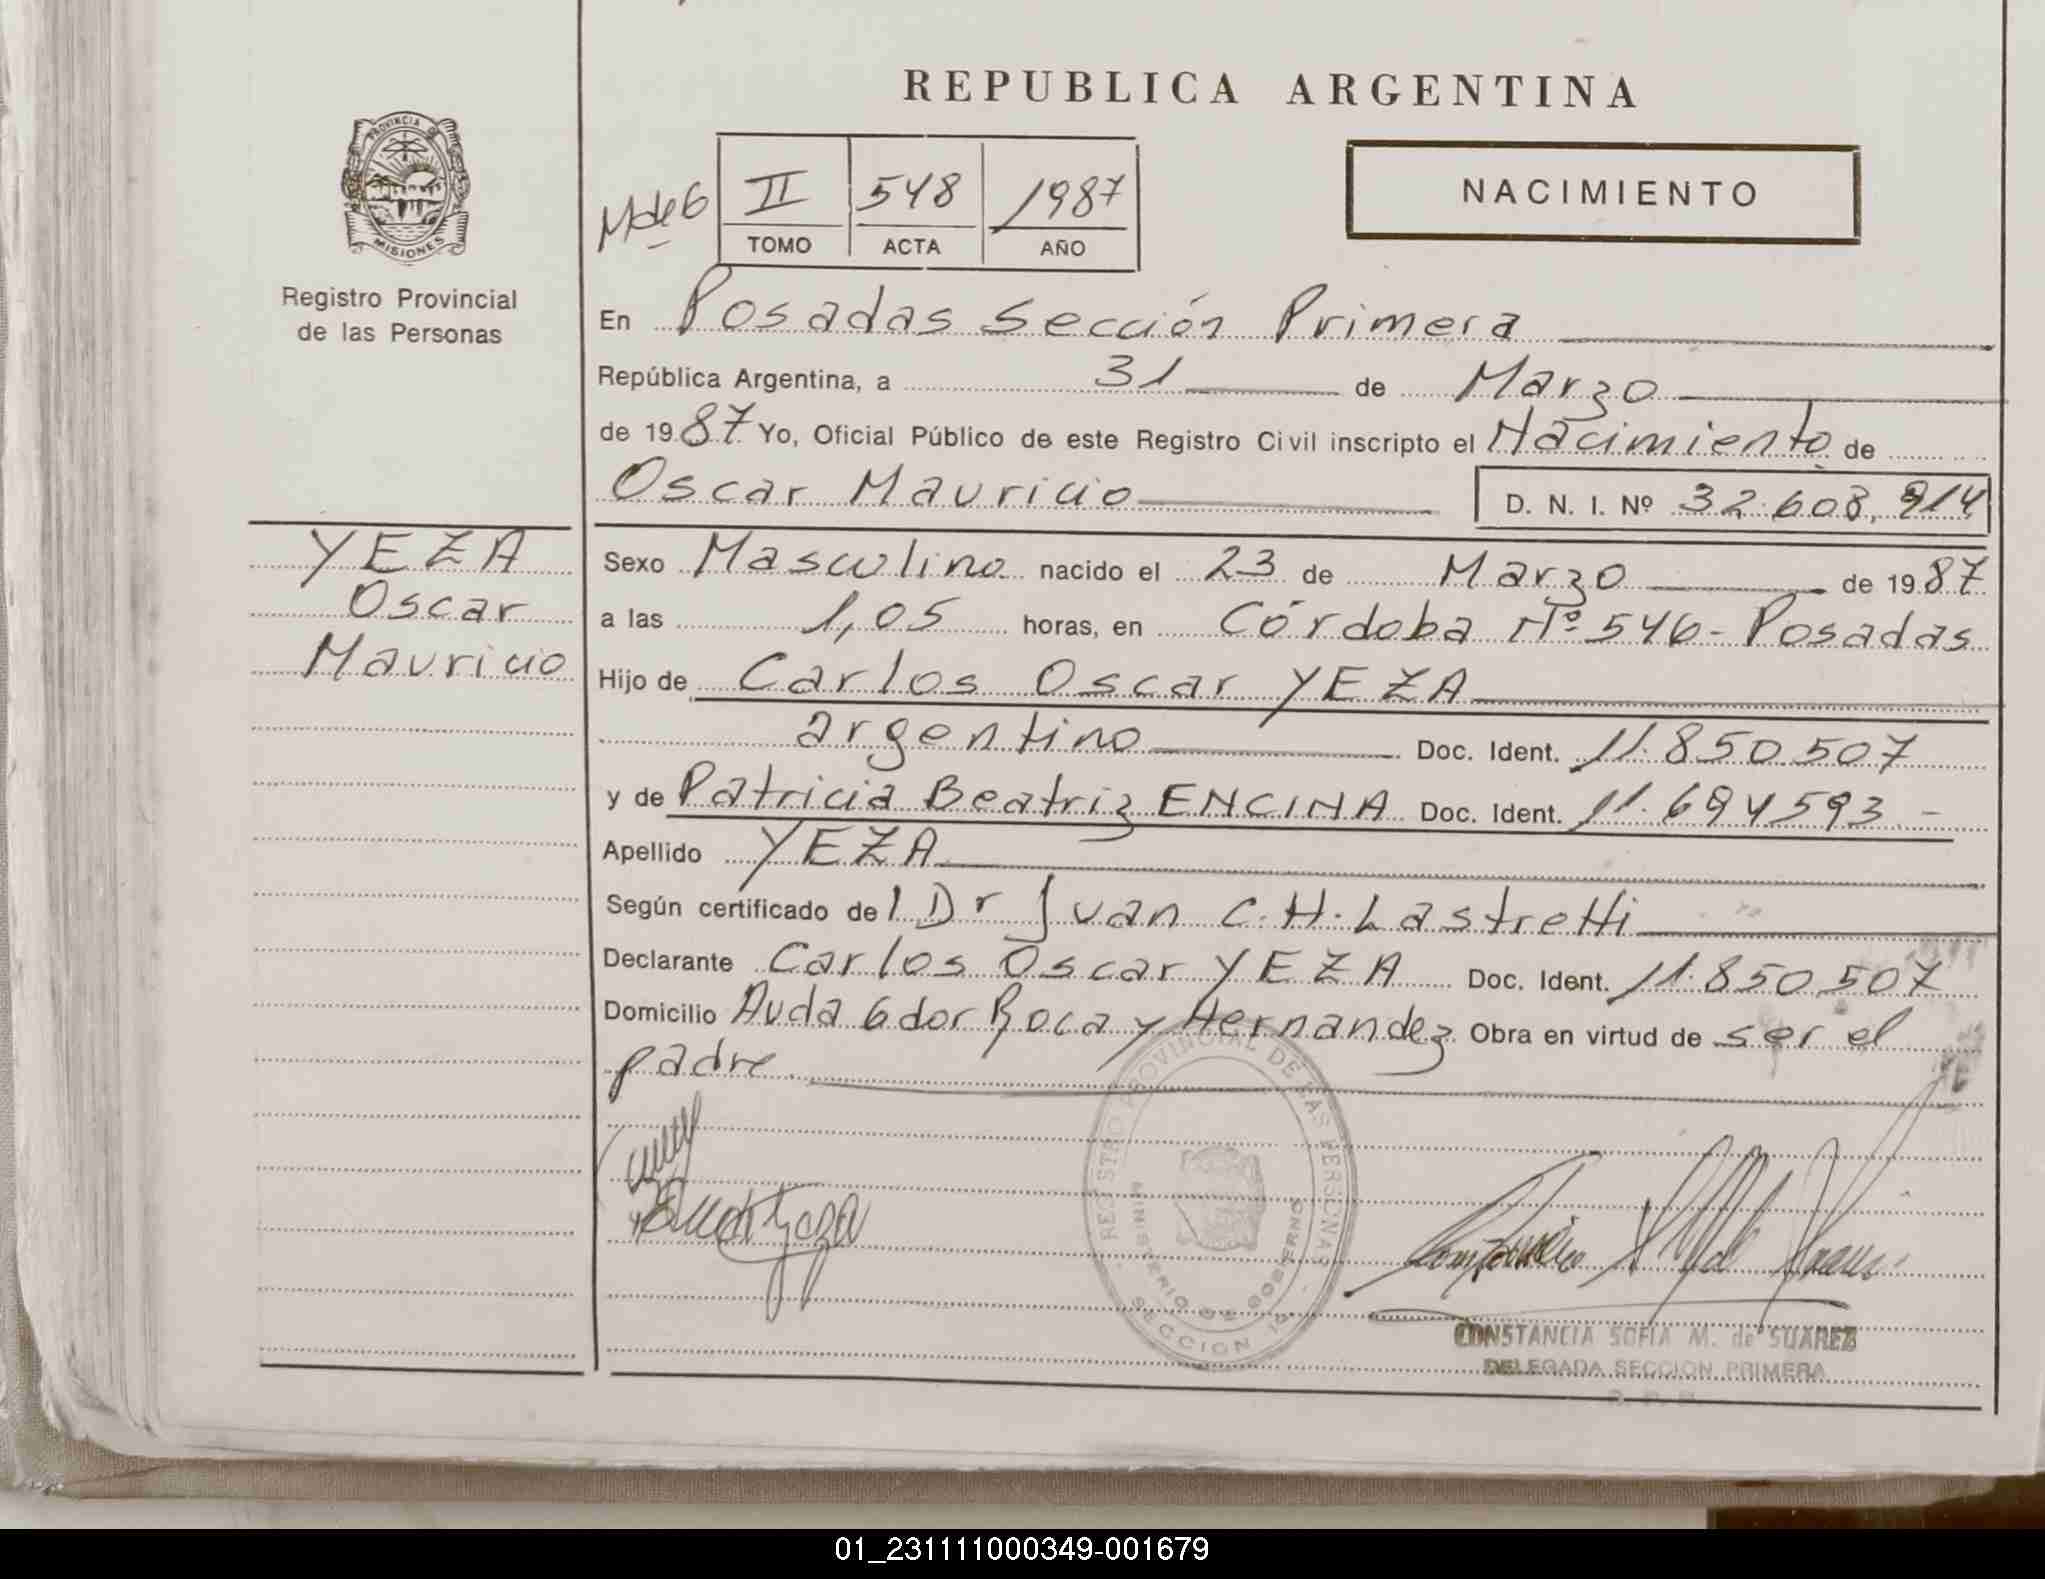 REPUBLICA ARGENTINA
PROVINCIA DE
MISIONES
Registro Provincial
de las Personas
NACIMIENTO
M de G
II 548 1987
TOMO ACTA AÑO
En Posadas Sección Primera
República Argentina, a 31 de Marzo
de 1987 Yo, Oficial Público de este Registro Civil inscripto el Nacimiento de
Oscar Mauricio D. N. I. Nº 32.608,914
YEZA
Oscar
Mauricio
Sexo Masculino nacido el 23 de Marzo de 1987
a las 1,05 horas, en Córdoba Nº 546 - Posadas
Hijo de Carlos Oscar YEZA
argentino Doc. Ident. 11.850.507
y de Patricia Beatriz ENCINA Doc. Ident. 11.694593.-
Apellido YEZA
Según certificado del Dr Juan C.H. Lastretti
Declarante Carlos Oscar YEZA Doc. Ident. 11.850.507
Domicilio Avda Gdor Roca y Hernandez Obra en virtud de ser el
padre.
REGISTRO PROVINCIAL DE LAS PERSONAS
MINISTERIO DE GOBIERNO
SECCION 1ª
CONSTANCIA SOFIA M. de SUAREZ
DELEGADA SECCION PRIMERA
01_231111000349-001679